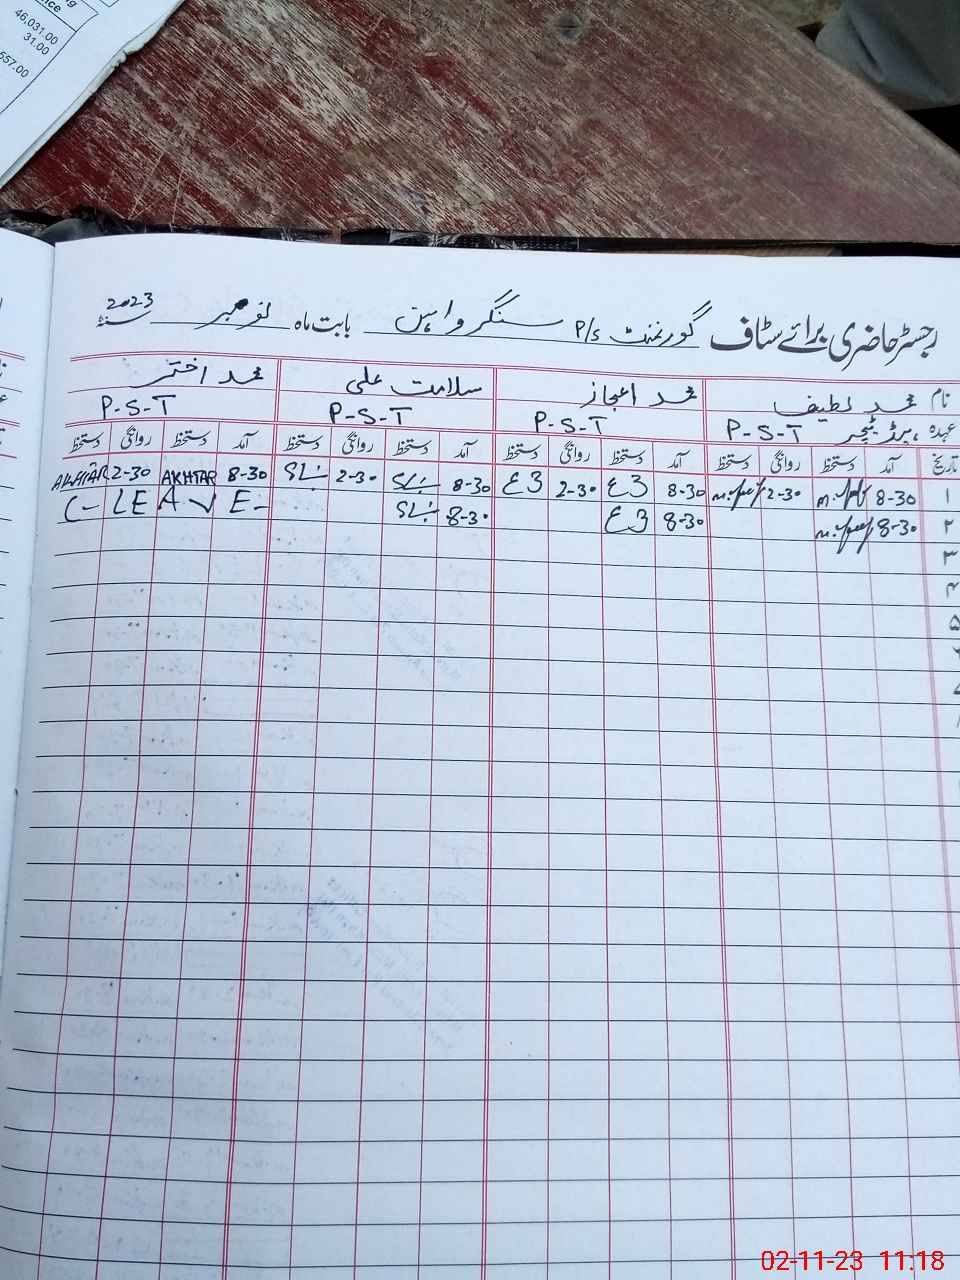 ce
46,031.00
31.00
557.00
رجسٹر حاضری برائے سٹاف گورنمنٹ P/s بابت ماہ نومبر سنۂ 2023
نام محمد لطیف محمد اعجاز سلامت علی محمد اختر
عہدہ ہیڈ ٹیچر P-S-T P-S-T P-S-T P-S-T
تاریخ آمد دستخط روانگی دستخط آمد دستخط روانگی دستخط آمد دستخط روانگی دستخط آمد دستخط روانگی دستخط
۱ 8-30 2-30 8-30 2-30 8-30 2-30 8-30 AKHTAR 2-30 AKHTAR
۲ 8-30 8-30 8-30 C-LEAVE-
۳
۴
۵
02-11-23 11:18